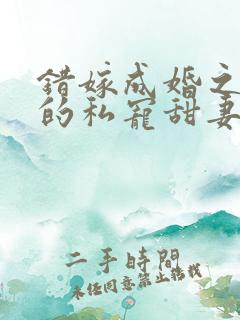 错嫁成婚之
的私宠甜妻
二手時間
未经同意禁止转载